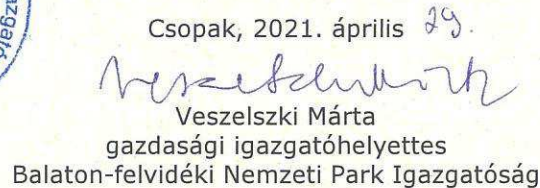 Csopak, 2021. április 29.
Veszelszki Márta
gazdasági igazgatóhelyettes
Balaton-felvidéki Nemzeti Park Igazgatóság